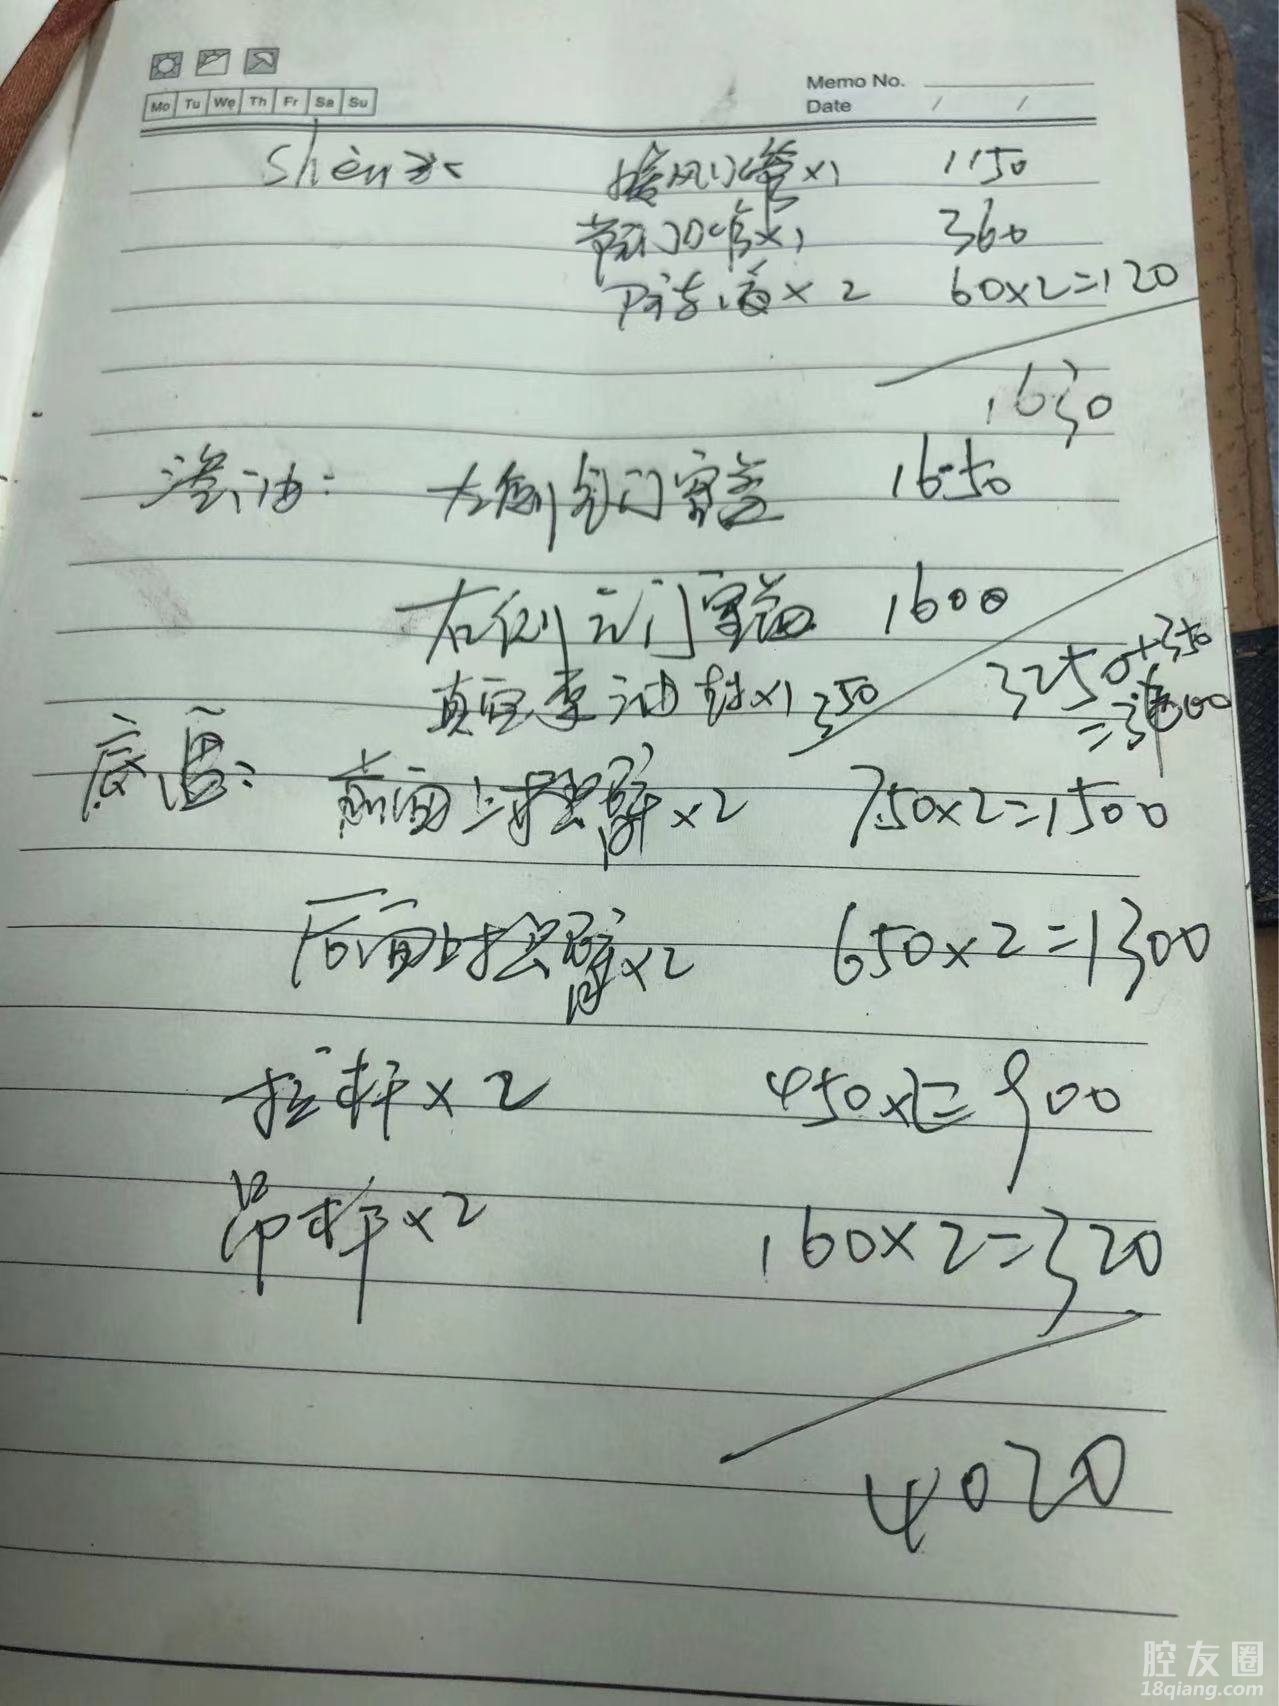 Mo Tu We Th Fr Sa Su
Memo No.
Date / /
Shèn水 接风口管x1 1150
节门口官x1 360
x2 60x2=120
1630
渗油: 左侧气门室盖 1650
右侧气门室盖 1600
真空泵油封x1 350
3250+350
=3600
底盘: 前面上控臂x2 750x2=1500
后面上控臂x2 650x2=1300
拉杆x2 450x2=900
吊杆x2 160x2=320
4020
腔友圈
18qiang.com